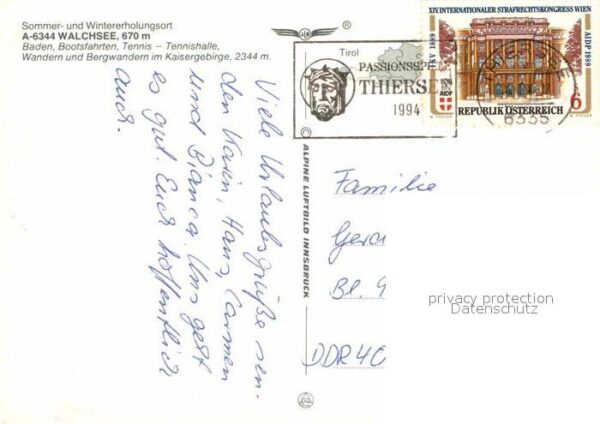 Sommer- und Wintererholungsort
A-6344 WALCHSEE, 670 m
Baden, Bootsfahrten, Tennis – Tennishalle,
Wandern und Bergwandern im Kaisergebirge, 2344 m.
Viele Urlaubsgrüße sen-
den Karin, Hans, Carmen
und Bianca. Uns geht
es gut. Euch hoffentlich
auch.
© ALPINE LUFTBILD INNSBRUCK
Tirol
PASSIONSS
THIERSEE
1994
XIV INTERNATIONALER STRAFRECHTSKONGRESS WIEN
IKV 1889
AIDP 1989
AIDP
6
REPUBLIK ÖSTERREICH
THIERSEE
6335
Familie
Gera
Bl. 9
DDR 40
privacy protection
Datenschutz